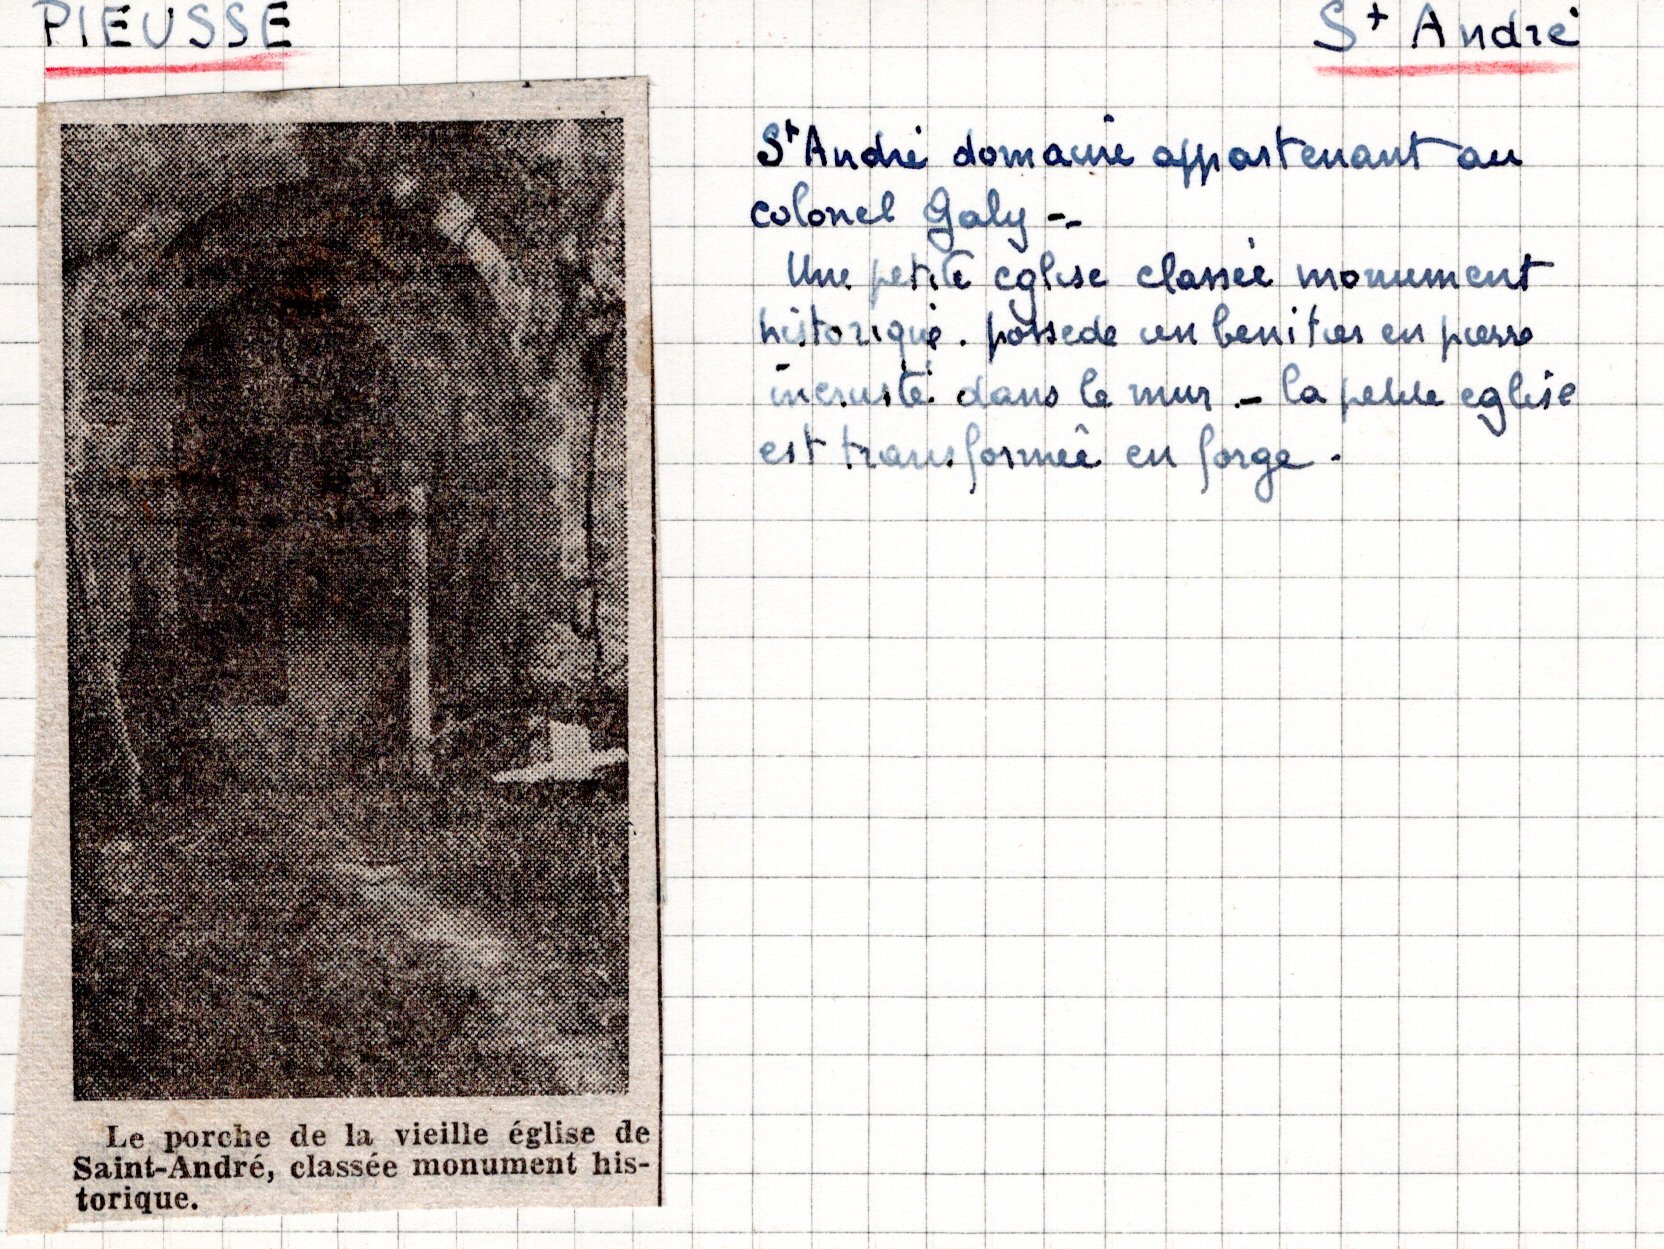 PIEUSSE
St André
St André domaine appartenant au
colonel Galy -
Une petite eglise classée monument
historique. possede un benitier en pierre
incrusté dans le mur - la petite eglise
est transformée en forge.
Le porche de la vieille église de
Saint-André, classée monument his-
torique.